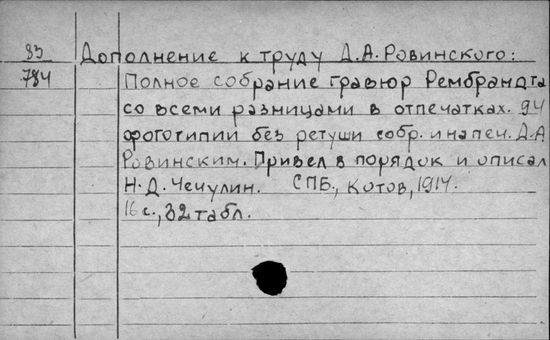 83 Дополнение к труду Д.А.Ровинского:
784 Полное собрание гравюр Рембрандта
со всеми разницами в отпечатках. 94
фототипии без ретуши собр. и напеч. Д.А
Ровинским. Привел в порядок и описал
Н.Д. Чечулин. СПБ., Котов, 1914.
16 с., 32 табл.